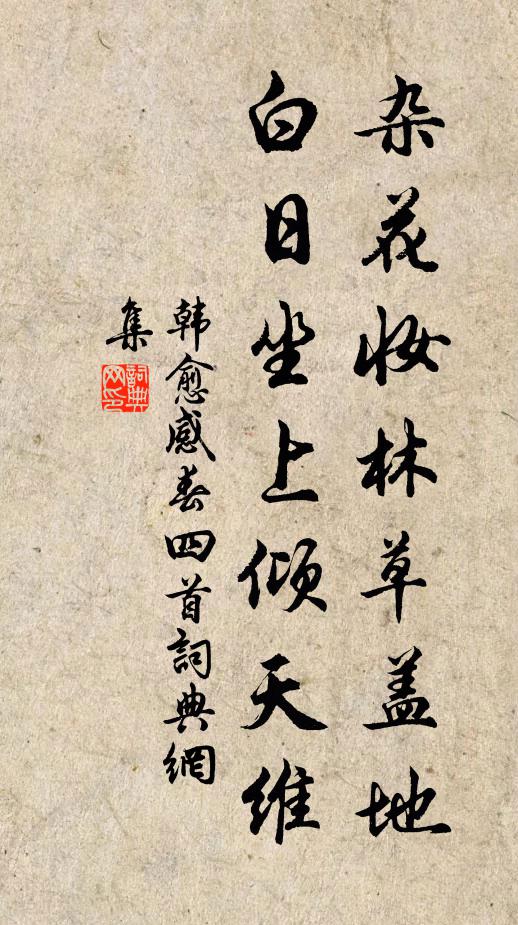 杂花妆林草盖地
白日坐上倾天维
韩愈感春四首詞典網
集
詞典
网印